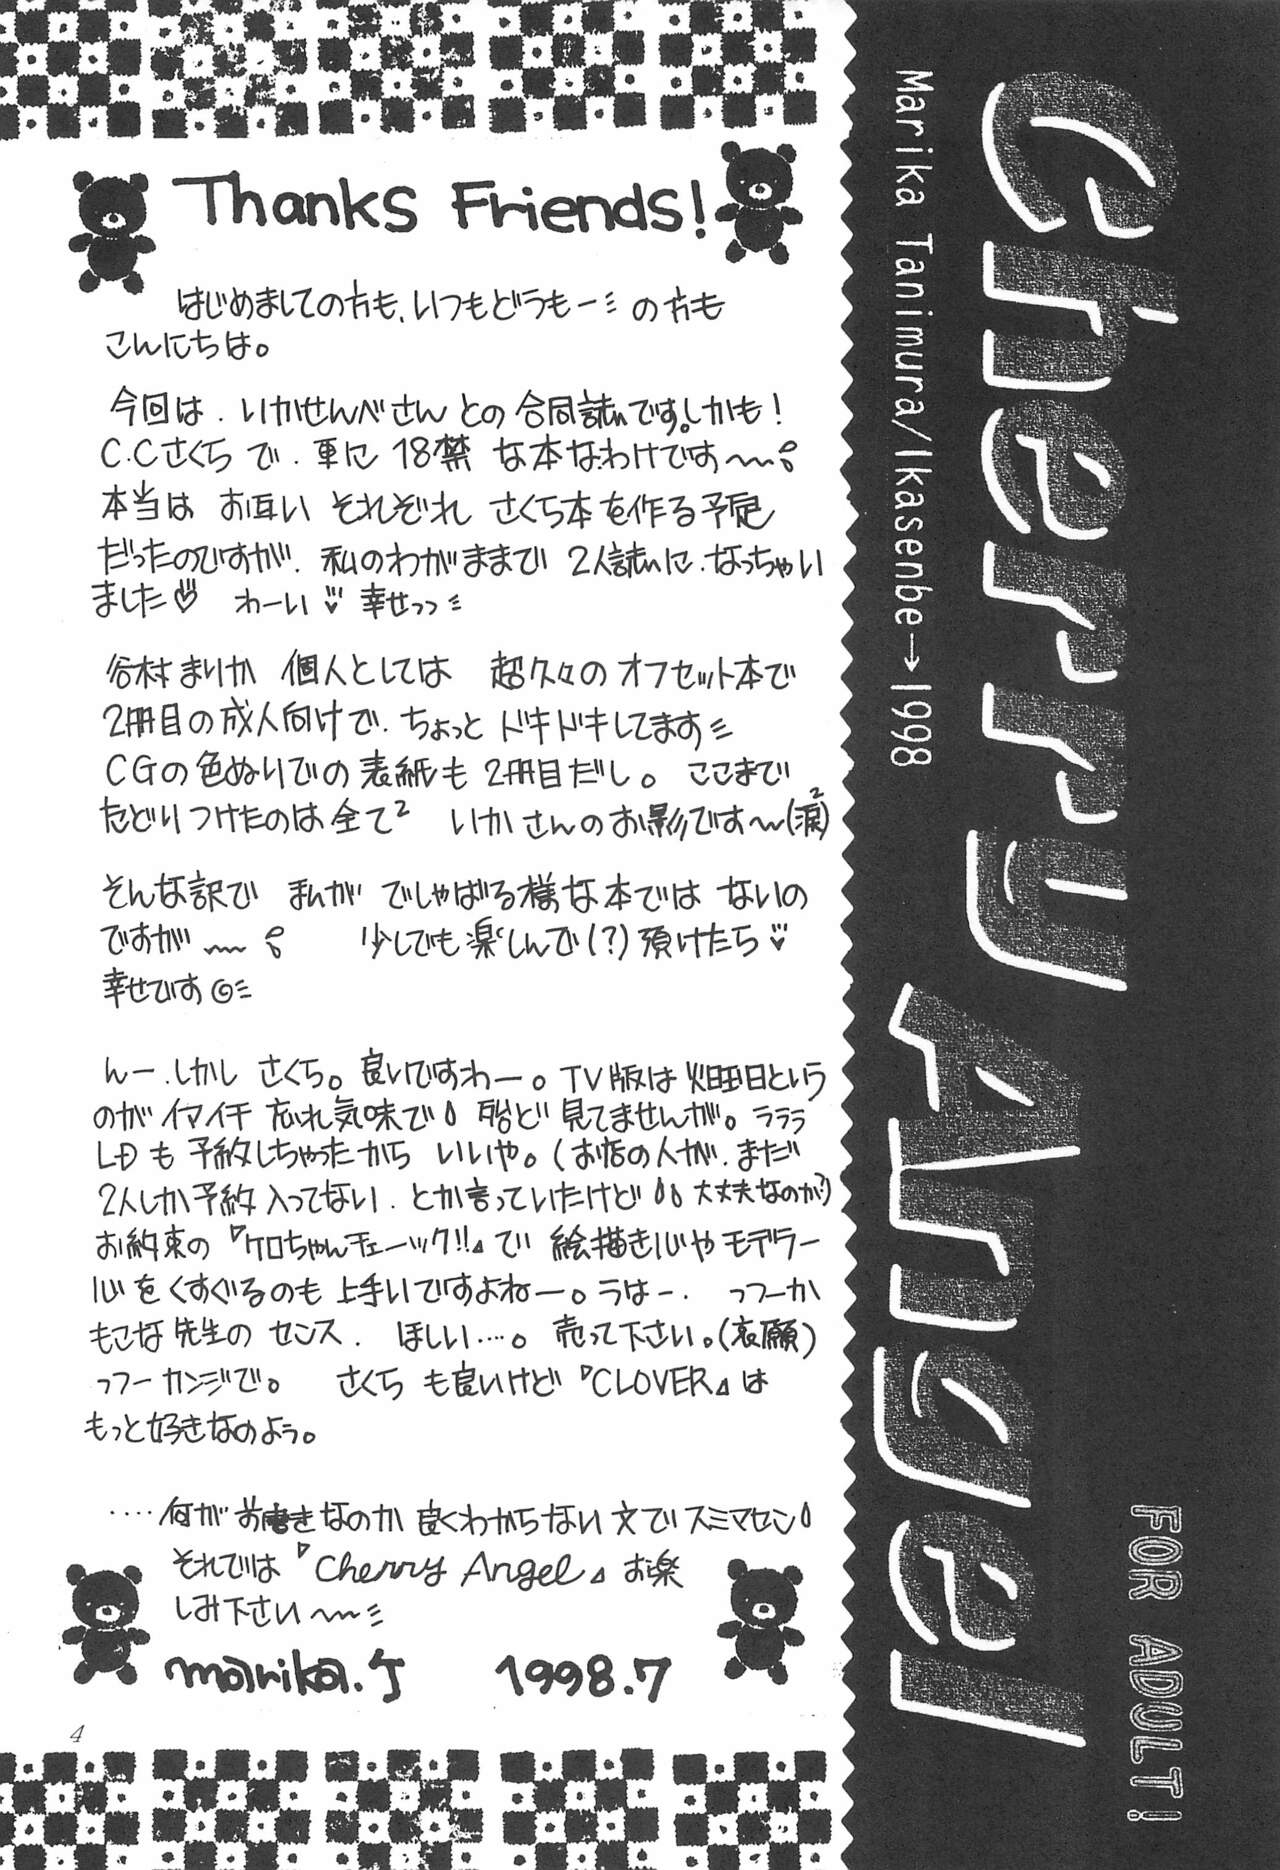 Thanks Friends!
はじめましての方も、いつもどうもーの方も
こんにちは。
今回は、いかせんべさんとの合同誌です。しかも！
C.Cさくらで、更に18禁な本なわけです〜
本当はお互いそれぞれさくら本を作る予定
だったのですが、私のわがままで2人誌になっちゃい
ました♡ わーい♡ 幸せっっ
谷村まりか個人としては超久々のオフセット本で
2冊目の成人向けで、ちょっとドキドキしてます
CGの色ぬりでの表紙も2冊目だし。ここまで
たどりつけたのは全て² いかさんのお影です〜(涙)²
そんな訳でまんがでしゃばる様な本ではないの
ですが〜 少しでも楽しんで(?)頂けたら♡
幸せです
んー、しかしさくら。良いですわー。TV版は火曜日という
のがイマイチ忘れ気味で殆ど見てませんが。ラララ
LDも予約しちゃったからいいや。(お店の人が、まだ
2人しか予約入ってない、とか言っていたけど 大丈夫なのか?)
お約束の『ケロちゃんチェーック!!』で絵描き心やモデラー
心をくすぐるのも上手いですよねー。うはー、っつーか
もこな先生のセンス、ほしい‥‥。売って下さい。(哀願)
っつーカンジで。 さくらも良いけど『CLOVER』は
もっと好きなのよう。
‥‥何がお書きなのか良くわからない文でスミマセン
それでは『Cherry Angel』お楽
しみ下さい〜
marika.
1998.7
4
Cherry Angel
Marika Tanimura/Ikasenbe→1998
FOR ADULT!